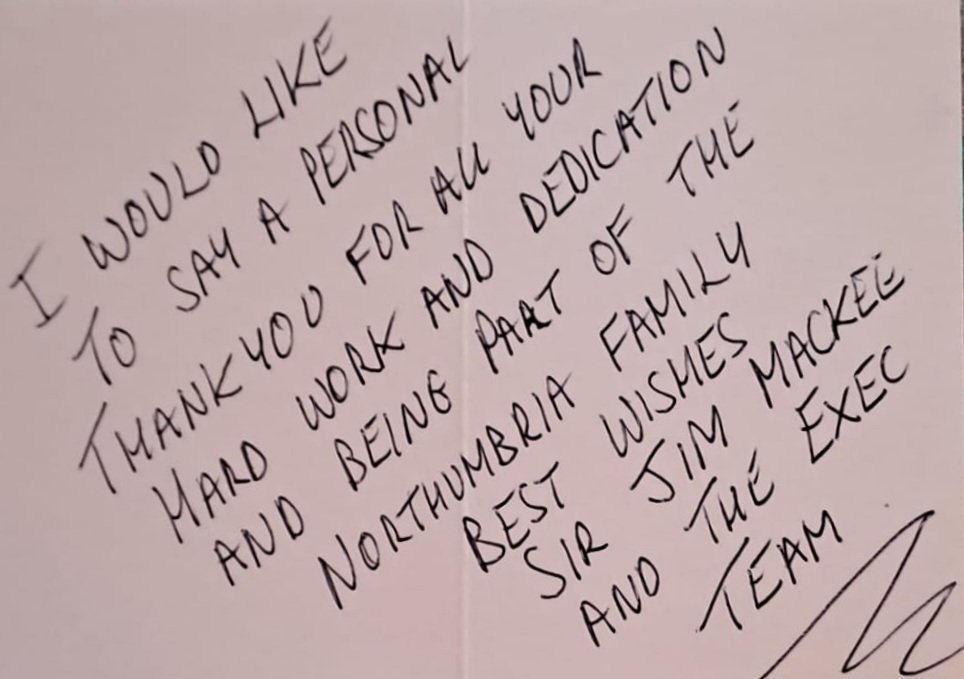 I WOULD LIKE
TO SAY A PERSONAL
THANK YOU FOR ALL YOUR
HARD WORK AND DEDICATION
AND BEING PART OF THE
NORTHUMBRIA FAMILY
BEST WISHES
SIR JIM MACKEE
AND THE EXEC
TEAM